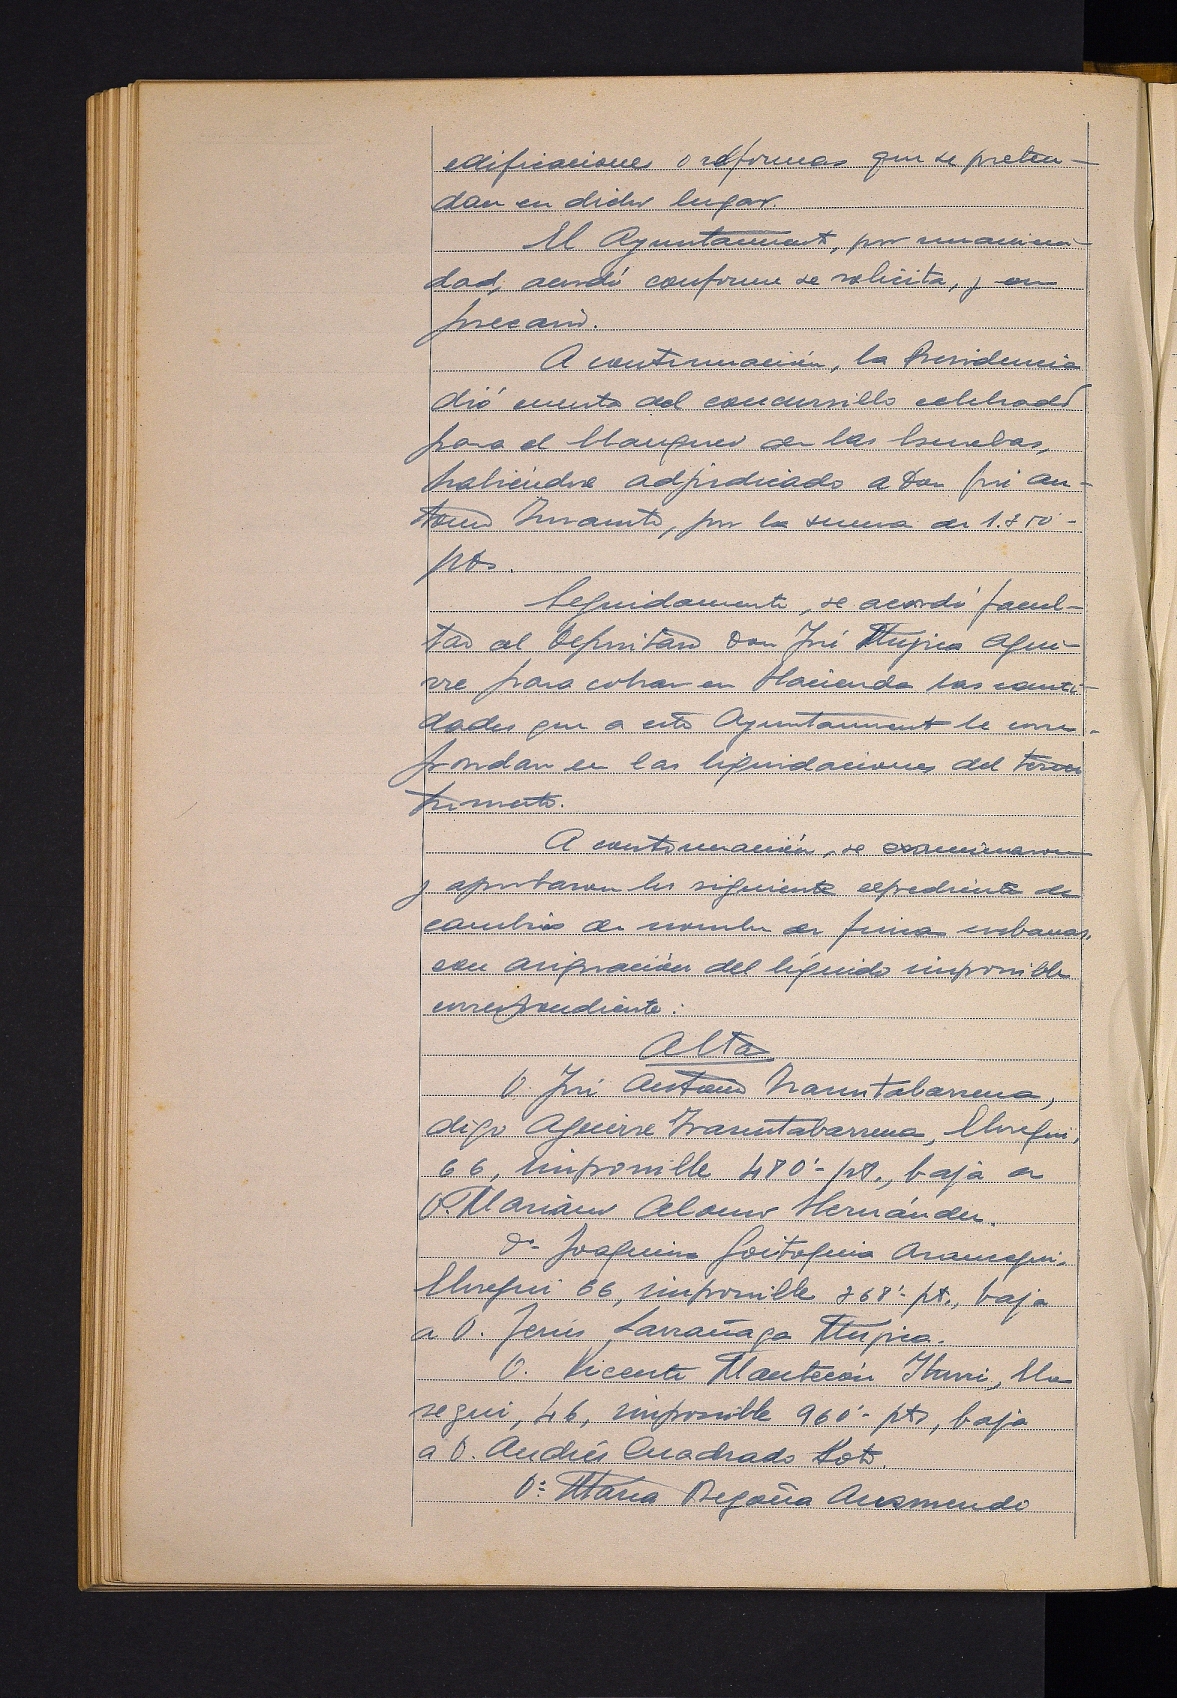 edificaciones o reformas que se preten-
dan en dicho lugar.
El Ayuntamiento, por unanimi-
dad, acordó conforme se solicita, y en
precario.
A continuación, la Presidencia
dió cuenta del concursillo celebrado
para el blanqueo de las Escuelas,
habiéndose adjudicado a Don José An-
tonio por la suma de
pts.
Seguidamente, se acordó facul-
tar al Depositario Don José Mujica Agui-
rre para cobrar en Hacienda las canti-
dades que a este Ayuntamiento le corres-
pondan en las liquidaciones del tercer
trimestre.
A continuación, se examinaron
y aprobaron los siguientes expedientes de
cambios de nombre de fincas urbanas,
con asignación del líquido imponible
correspondiente:
Alta
D. José Antonio
digo Aguirre
66, imponible 480'- pts., baja a
D. Mariano Alonso Hernández.
Dª Joaquina
66, imponible 768'- pts., baja
a D. Jesús Larrañaga Mujica.
D. Vicente Mantecón
segui, 46, imponible 960'- pts, baja
a D. Andrés Cuadrado Soto.
Dª María Begoña Arizmendi